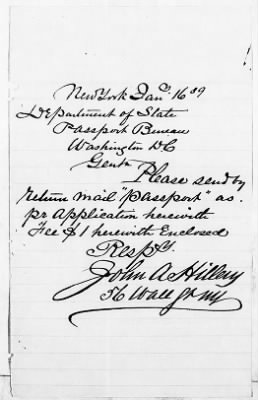 New York Jany. 16 89
Department of State
Passport Bureau
Washington DC
Gents
Please send by
return mail "Passport" as
pr application herewith
Fee $1 herewith Enclosed
Respy.
John A Hillery
56 Wall St NY